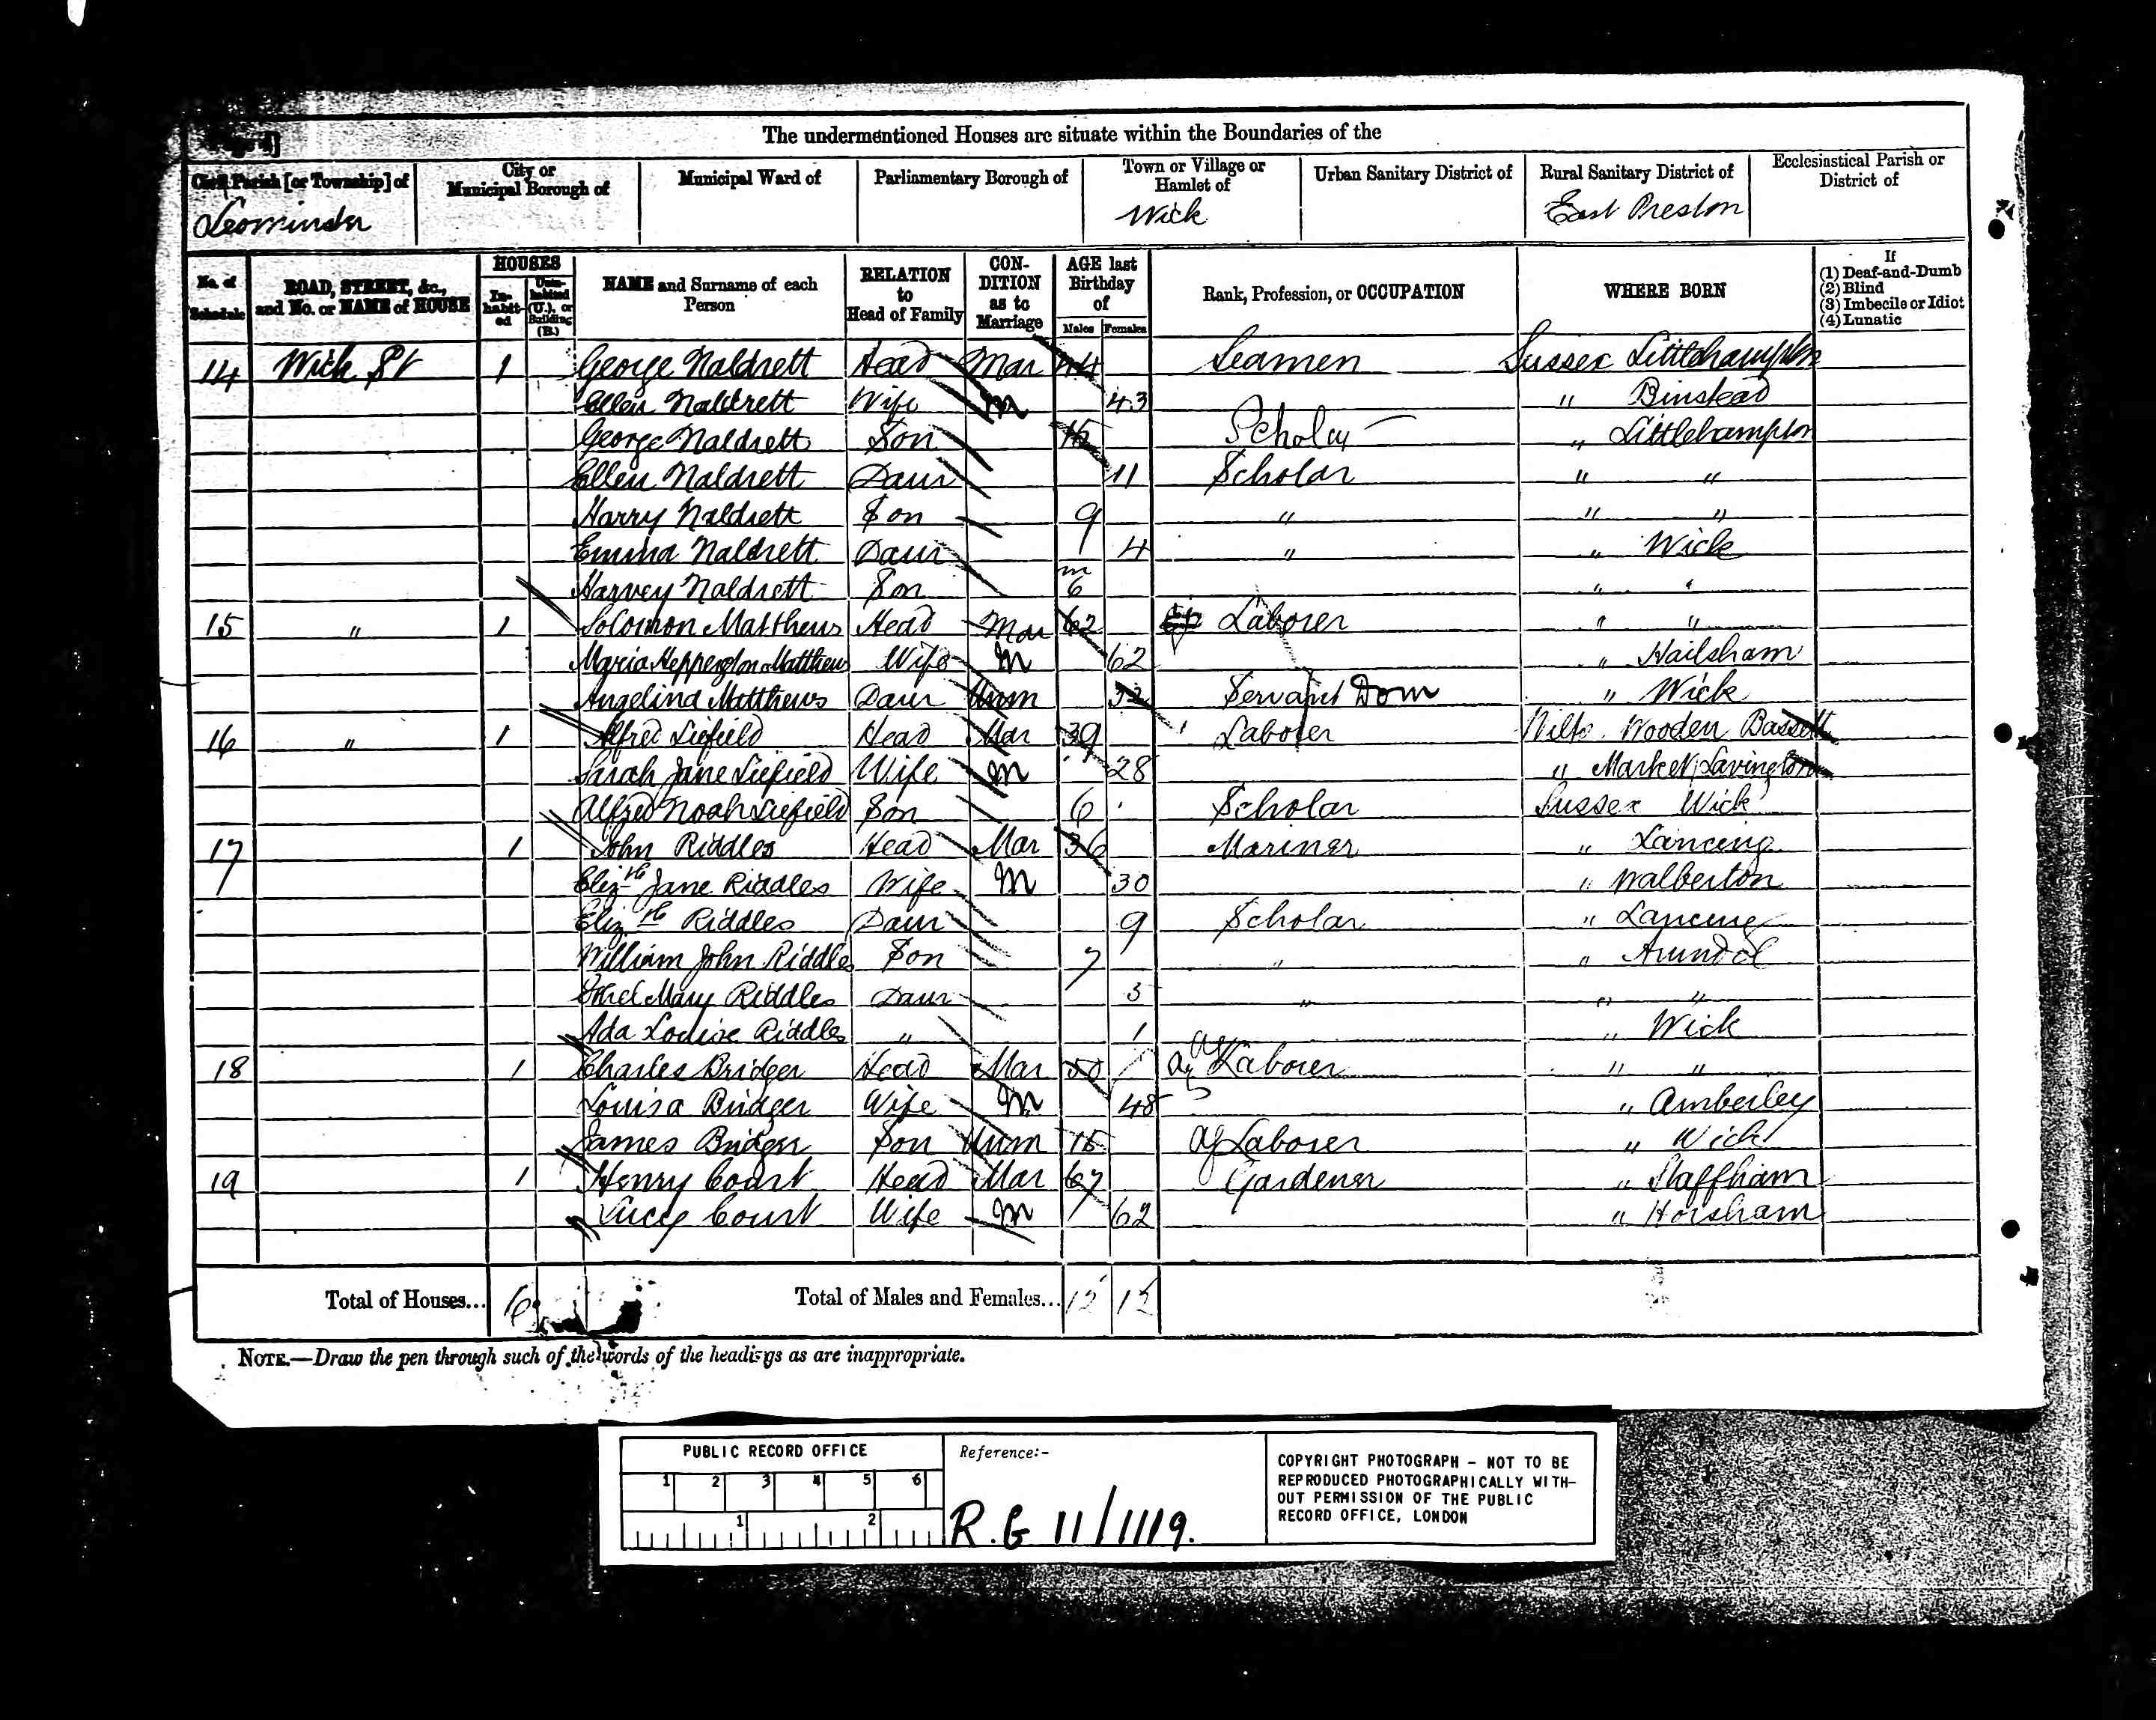 The undermentioned Houses are situate within the Boundaries of the
Civil Parish [or Township] of
City or Municipal Borough of
Municipal Ward of
Parliamentary Borough of
Town or Village or Hamlet of
Urban Sanitary District of
Rural Sanitary District of
Ecclesiastical Parish or District of
Leominster Wick East Preston
No. of Schedule
ROAD, STREET, &c., and No. or NAME of HOUSE
HOUSES
In-habit-ed
Unin-habited (U.), or Building (B.)
NAME and Surname of each Person
RELATION to Head of Family
CON-DITION as to Marriage
AGE last Birthday of
Males Females
Rank, Profession, or OCCUPATION
WHERE BORN
If
(1) Deaf-and-Dumb
(2) Blind
(3) Imbecile or Idiot
(4) Lunatic
14 Wick St 1 George Naldrett Head Mar 44 Seamen Sussex Littlehampton
Ellen Naldrett Wife M 43 " Binstead
George Naldrett Son 15 Scholar " Littlehampton
Ellen Naldrett Daur 11 Scholar " "
Harry Naldrett Son 9 " " "
Emma Naldrett Daur 4 " " Wick
Harvey Naldrett Son 6 m " "
15 " 1 Solomon Matthews Head Mar 62 Laborer " "
Maria Matthews Wife M 62 " Hailsham
Angelina Matthews Daur Unm 32 Servant Dom " Wick
16 " 1 Alfred Liefield Head Mar 39 Laborer Wilts Wooden Bassett
Sarah Jane Liefield Wife M 28 " Market Lavington
Alfred Noah Liefield Son 6 Scholar Sussex Wick
17 1 John Riddles Head Mar 36 Mariner " Lancing
Elizth Jane Riddles Wife M 30 " Walberton
Elizth Riddles Daur 9 Scholar " Lancing
William John Riddles Son 7 " " Arundel
Ethel Mary Riddles Daur 3 " " "
Ada Louise Riddles " 1 " Wick
18 1 Charles Bridger Head Mar 50 Ag Laborer " "
Louisa Bridger Wife M 48 " Amberley
James Bridger Son Unm 15 Ag Laborer " Wick
19 1 Henry Court Head Mar 67 Gardener " Staffham
Lucy Court Wife M 62 " Horsham
Total of Houses... 6 Total of Males and Females... 12 12
NOTE.—Draw the pen through such of the words of the headings as are inappropriate.
PUBLIC RECORD OFFICE
1 2 3 4 5 6
1 2
Reference:-
R.G 11/1119.
COPYRIGHT PHOTOGRAPH - NOT TO BE
REPRODUCED PHOTOGRAPHICALLY WITH-
OUT PERMISSION OF THE PUBLIC
RECORD OFFICE, LONDON